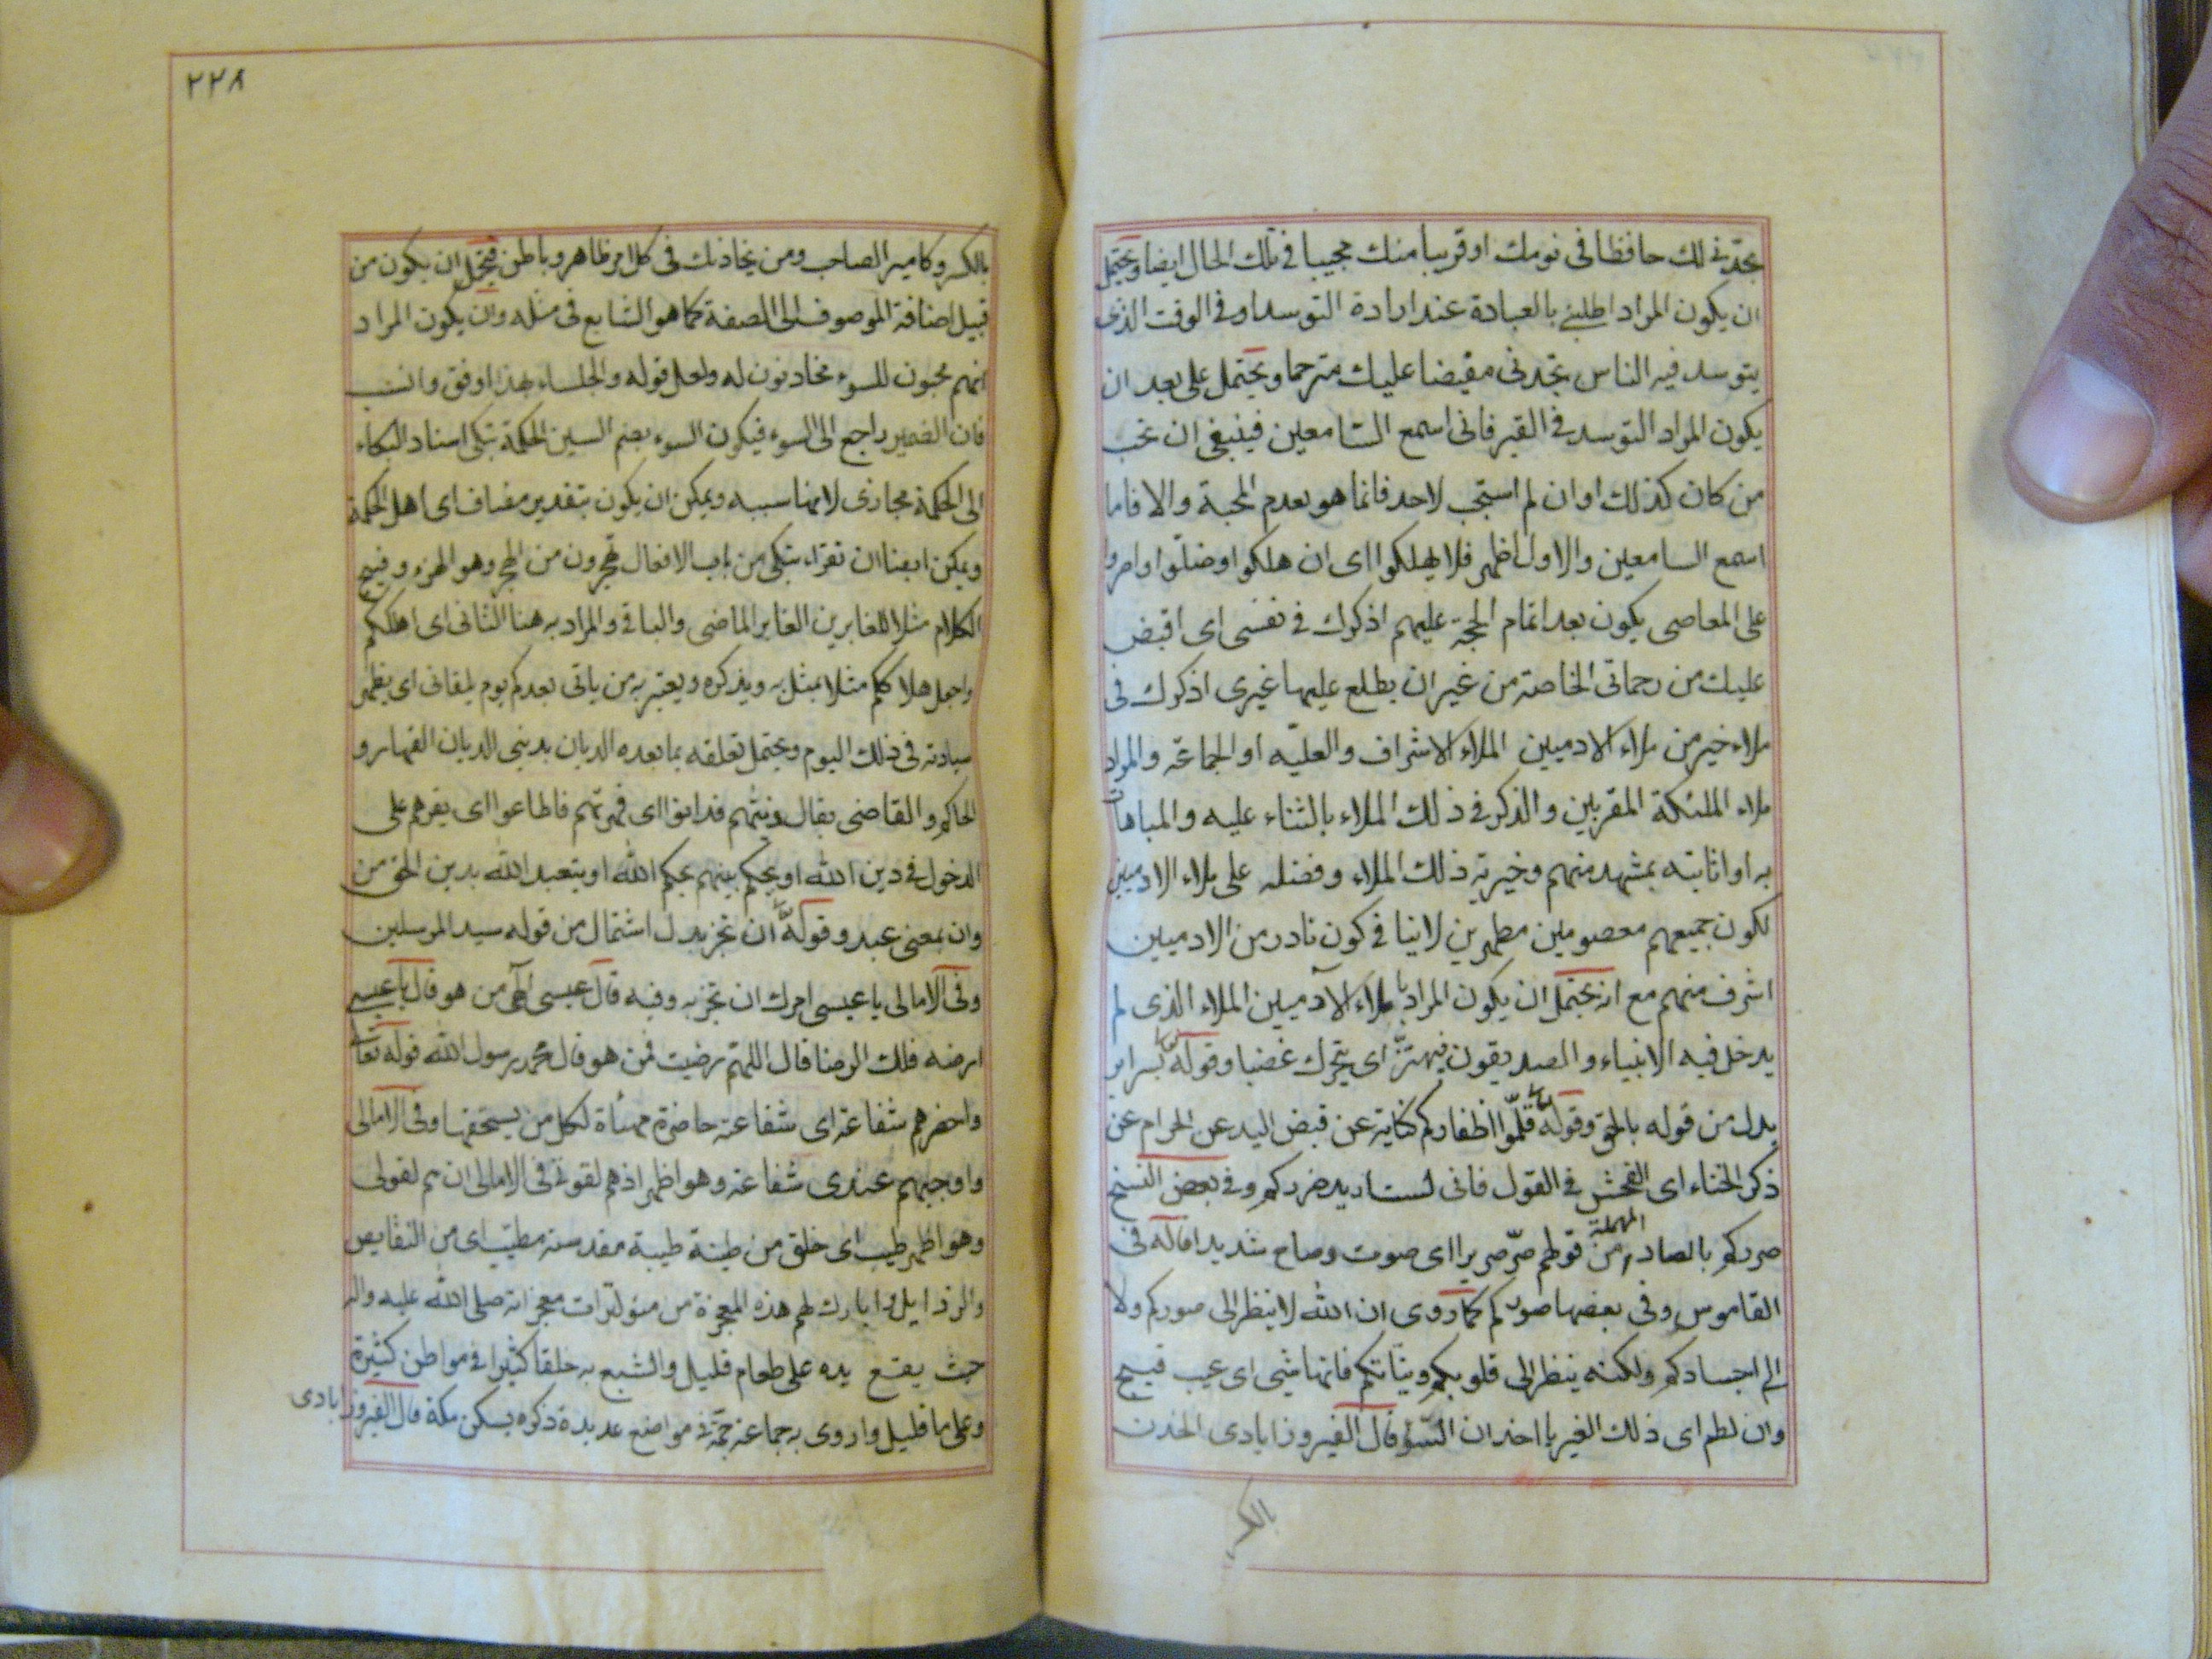 تجدني لك حافظا في نومك او قريبا منك مجيبا في تلك الحال ايضا ويحتمل
ان يكون المراد اطلبني بالعبادة عند ارادة التوسد او في الوقت الذى
يتوسد فيه الناس تجدنى مفيضا عليك مترحما ويحتمل على بعد ان
يكون المراد التوسد في القبر فانى اسمع السامعين فينبغى ان يحب
من كان كذلك او ان لم استجب لاحد فانما هو لعدم المحبة والا فانا
اسمع السامعين والاول اظهر فلا يهلكوا اى ان هلكوا او ضلّوا او اصروا
على المعاصى يكون بعد اتمام الحجة عليهم اذكرك في نفسى اى افيض
عليك من رحماتى الخاصة من غير ان يطلع عليها غيرى اذكرك فى
ملاء خير من ملاء الادميين الملاء الاشراف والعليّه او الجماعة والمراد
ملاء الملئكة المقربين والذكر في ذلك الملاء بالثناء عليه والمباهات
به او اثابته بمشهد منهم وخيرية ذلك الملاء وفضله على ملاء الادميين
لكون جميعهم معصومين مطهرين لا ينافي كون نادر من الادميين
اشرف منهم مع انه يحتمل ان يكون المراد بملاء الآدميين الملاء الذى لم
يدخل فيه الانبياء والصديقون فيهتزّ اى يتحرك غضبا وقوله بسراير
بدل من قوله بالحق وقوله قلّموا اظفاركم كناية عن قبض اليد عن الحرام عن
ذكر الخناء اى الفحش في القول فانى لست اريد ضرركم وفي بعض النسخ
صرركم بالصاد المهملة من قولهم صرّ صريرا اى صوت وصاح شديدا قاله فى
القاموس وفى بعضها صوركم كما روى ان الله لا ينظر الى صوركم ولا
الى اجسادكم ولكنه ينظر الى قلوبكم ونيّاتكم فانها شيئ اى عيب قبيح
وان لطم اى ذلك الغير يا اخدان السّوء قال الفيروزابادى الخدن
بالكسر
٢٢٨
بالكسر وكامير الصاحب ومن يخادنك فى كل امر ظاهر وباطن فيحتمل ان يكون من
قبيل اضافة الموصوف الى الصفة كما هو الشايع فى مثله وان يكون المراد
انهم محبون للسوء مخادنون له ولعل قوله والجلساء بهذا اوفق وانسب
فان الضمير راجع الى السوء فيكون السوء بضم السين الحكمة تبكى اسناد البكاء
الى الحكمة مجازى لانها سببه ويمكن ان يكون بتقدير مضاف اى اهل الحكمة
ويمكن ايضا ان تقراء تبكى من باب الافعال تهجرون من الهجر وهو الهزء وقبيح
الكلام مثلا للغابرين الغابر الماضى والباقى والمراد به هنا الثانى اى اهلككم
واجعل هلاككم مثلا يمثل به ويذكره ويعتبر به من ياتى بعدكم يوم يلقانى اى يظهر
سيادته فى ذلك اليوم ويحتمل تعلقه بما بعده الديان بدينى الديان القهار و
الحاكم والقاضى يقال دنتهم فدانوا اى قهرتهم فاطاعوا اى يقهرهم على
الدخول فى دين الله او يحكم بينهم بحكم الله او يتعبد الله بدين الحق من
دان بمعنى عبد وقوله ان تخبر بدل اشتمال من قوله سيد المرسلين
وفى الامالى يا عيسى امرك ان تخبر به وفيه قال عيسى الهى من هو قال يا عيسى
ارضه فلك الرضا قال اللهم رضيت فمن هو قال محمد رسول الله قوله تعالى
واحضرهم شفاعة اى شفاعة حاضرة مهيأة لكل من يستحقها وفى الامالى
واوجبهم عندى شفاعة وهو اظهر اذ هم لقونى فى الامالى ان هم لقولى
وهو اظهر طيب اى خلق من طينة طيبة مقدسة مطيب اى من النقايص
والرذايل وابارك لهم هذه المعجزة من متواترات معجزاته صلى الله عليه واله
حيث يضع يده على طعام قليل والشبع به خلقا كثيرا فى مواطن كثيرة
وعلى ماء قليل واروى به جماعة جمة فى مواضع عديدة ذكره يسكن مكة قال الفيروزابادى